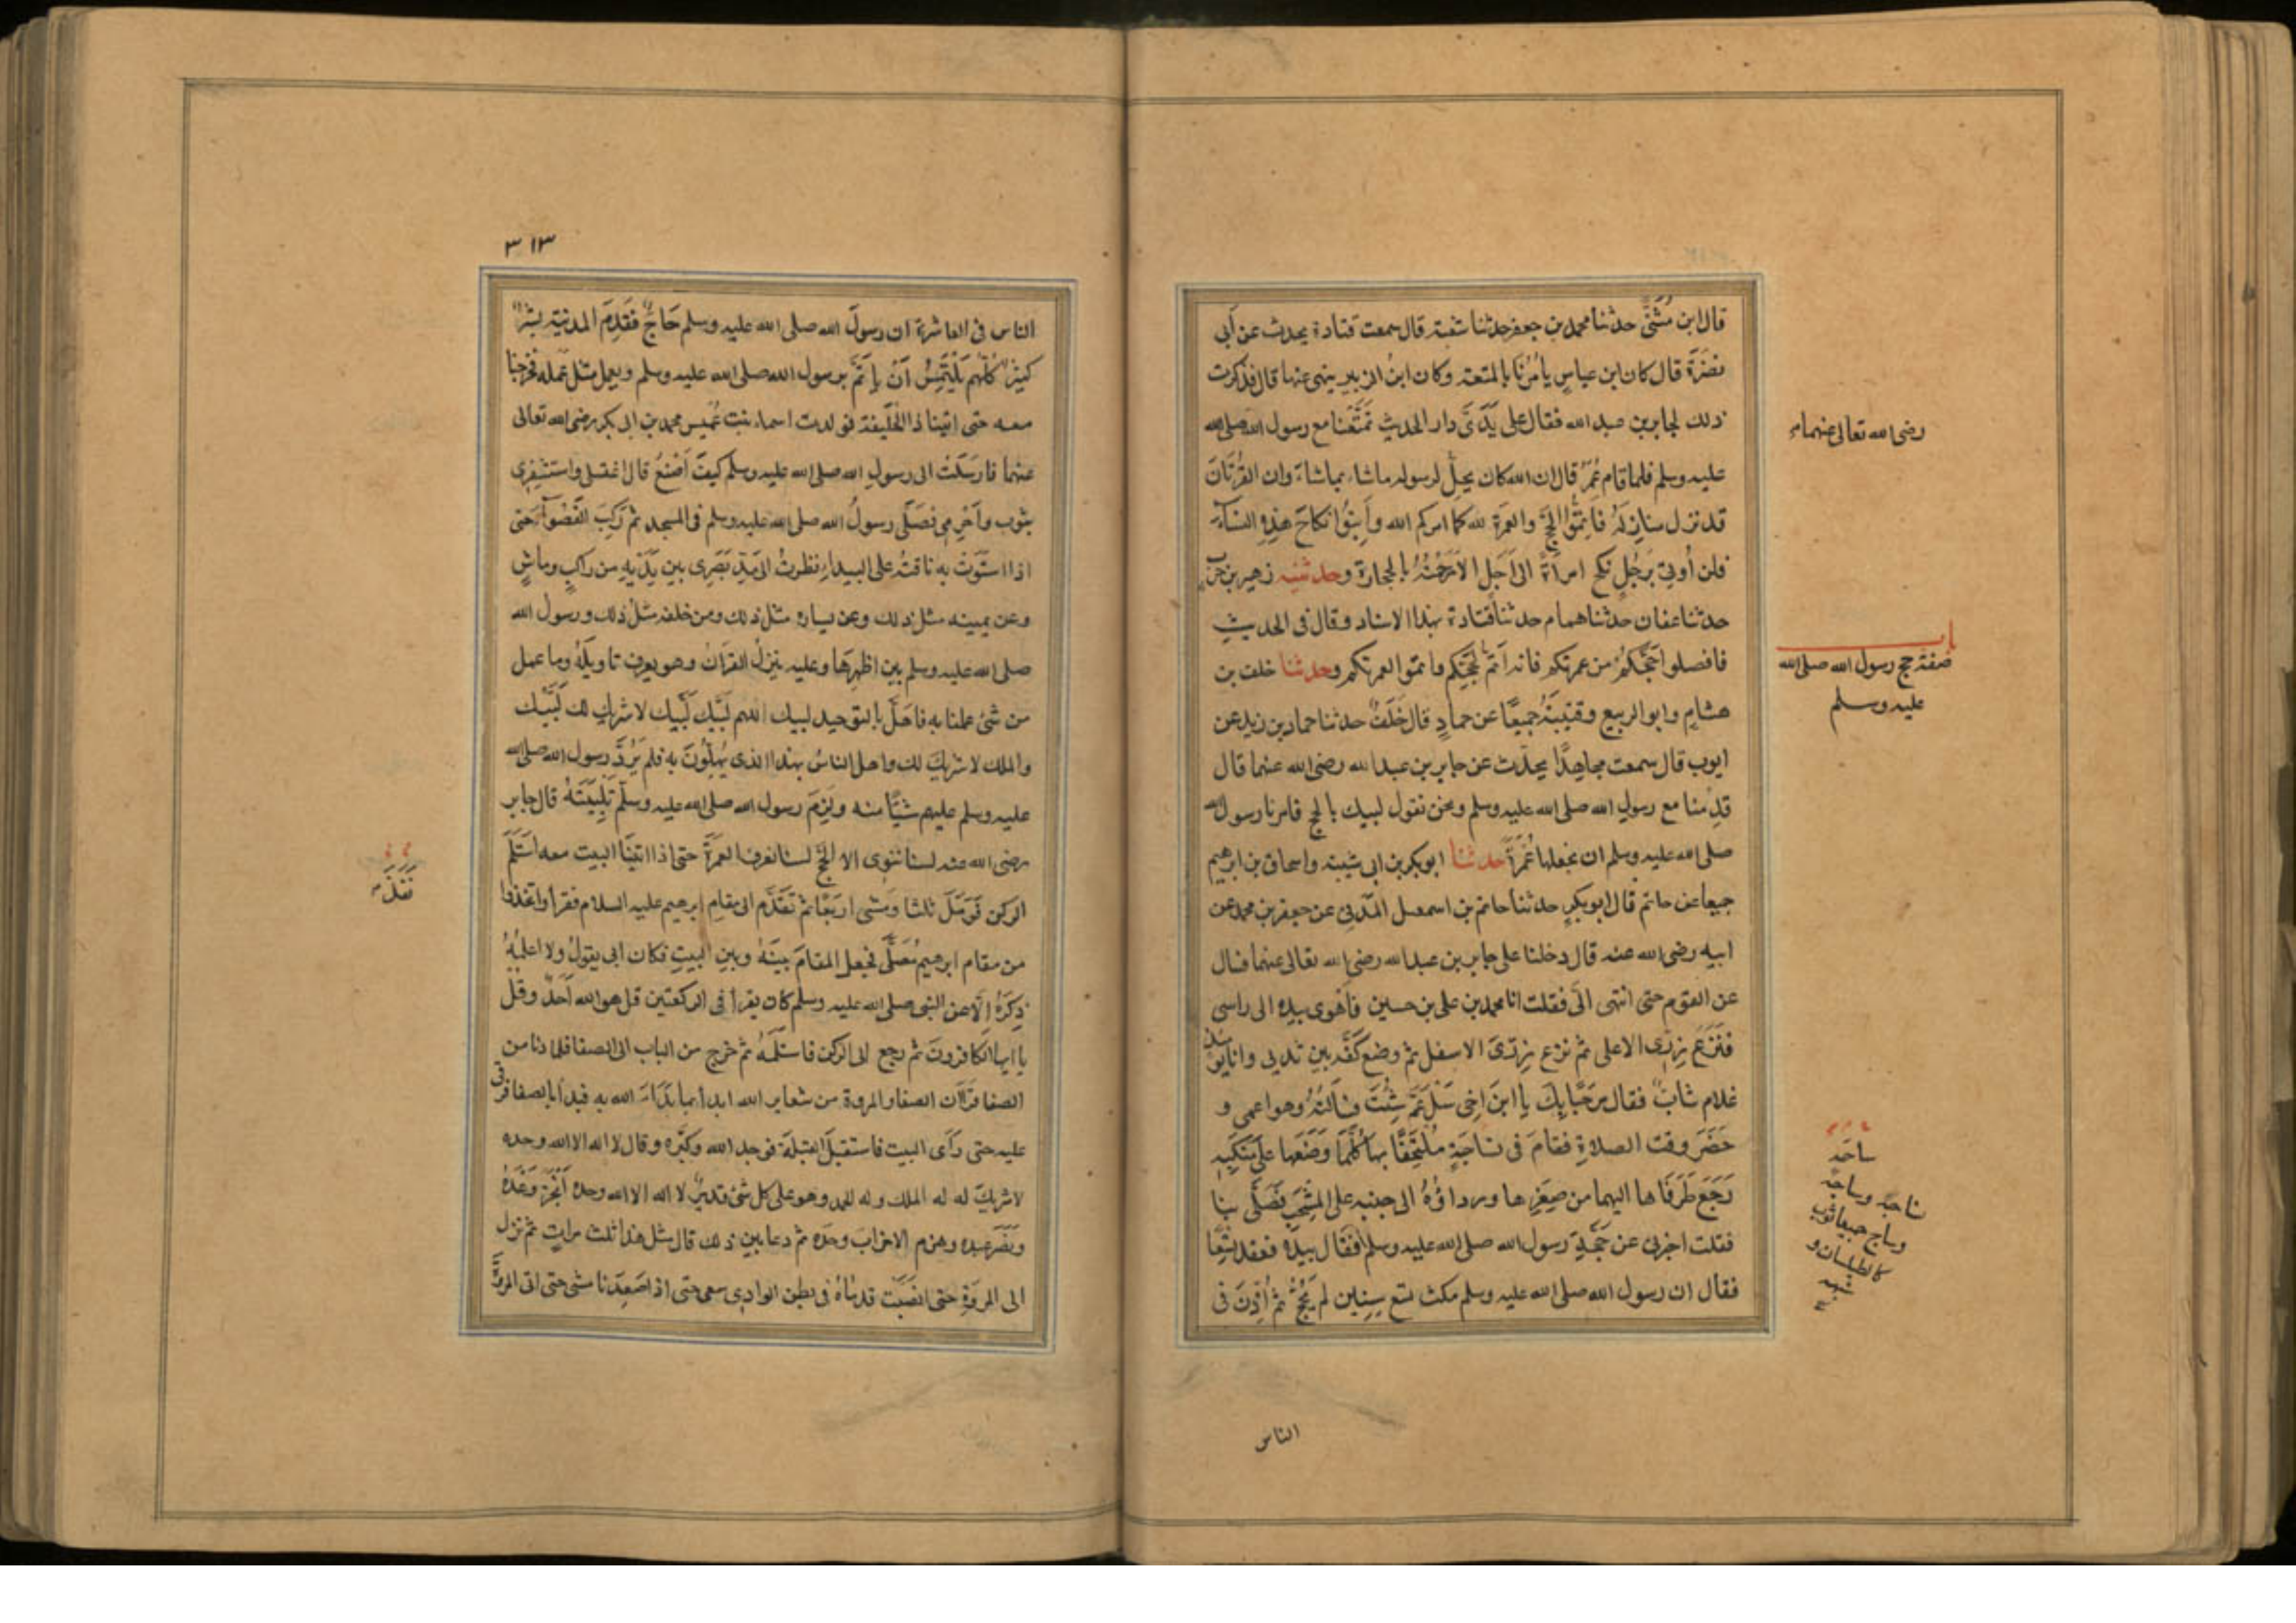 قال ابن مُثَنَّى حدثنا محمد بن جعفر حدثنا شعبة قال سمعت قتادة يحدث عن أبي
نضرَةَ قال كان ابن عباسٍ يأمُرُنَا بالمتعة وكان ابنُ الزبير ينهى عنها قال فذكرت
ذلك لجابر بن عبد الله فقال على يَدَىَّ دار الحديث تمتَّعْنا مع رسول الله صلى الله
رضى الله تعالى عنهما
عليه وسلم فلما قام عُمَرُ قال ان الله كان يحلّ لرسوله ما شاء بما شاءَ وان القُرْآنَ
قد نزل منازِلَهُ فَاَتِمُّوا الحَجَّ والعمرَة لله كما امركم الله وأبِتُّوا نكاحَ هذِهِ النساءِ
فلن أُوتِىَ بَرجُلٍ نكح امرأةً الى اَجَلٍ الا رَجَمْتُهُ بالحجارة وحدثنيه زهير بن حرب
حدثنا عفان حدثنا همام حدثنا قتادة بهذا الاسناد وقال فى الحديث
باب
صفة حج رسول الله صلى الله
عليه وسلم
فافصلوا حَجَّكُمْ من عمرتكم فانه اَتَمُّ لِحَجِّكم واتمّوا لعمرتكم وحدثنا خلف بن
هشامٍ وابو الربيع وقتيبَةُ جميعًا عن حمادٍ قال خَلَفٌ حدثنا حماد بن زيد عن
ايوب قال سمعت مجاهِدًا يحدّث عن جابر بن عبد الله رضى الله عنهما قال
قدِمْنا مع رسولِ الله صلى الله عليه وسلم ونحن نقول لبيك بالحج فامرنا رسول الله
صلى الله عليه وسلم ان نجعلها عُمْرَةً حدثنا ابو بكر بن ابى شيبة واسحاق بن ابرهيم
جميعا عن حاتم قال ابو بكرٍ حدثنا حاتم بن اسمعيل المَدَنِىّ عن جعفر بن محمد عن
ابيه رضى الله عنه قال دخلنا على جابر بن عبد الله رضى الله تعالى عنهما فسال
عن القوم حتى انتهى الَىَّ فقلت انا محمد بن على بن حسين فَاَهْوى بيده الى راسى
فَنَزَعَ زِرِّى الاعلى ثم نزع زِرِّىَ الاسفل ثم وضع كَفَّه بين ثديى وانا يومئذٍ
غلام شابّ فقال مَرحَبًا بِكَ يا ابنَ اخِى سَلْ عَمَّ شِئْتَ فسألتُهُ وهو اعمى و
حَضَر وقت الصلاةِ فقامَ فى نساجَةٍ مُلْتحِفًا بها كُلَّمَا وَضَعَها على مَنْكِبِهِ
ساجَة
رَجَعَ طَرَفَاها اليهما من صِغَرِها ورداؤُهُ الى جنبه على المِشْجَبِ فَصَلَّى بنا
وساج جميعا ثوب
كالطيلسان و
شبهه
فقلت اخبرنى عن حَجَّةِ رسول الله صلى الله عليه وسلم فقال بيَدِه فعقد تِسْعًا
فقال ان رسول الله صلى الله عليه وسلم مكث تسع سِنِين لم يَحُجّ ثم أُذِّنَ فى
الناس
٣١٣
الناس فى العاشرة ان رسولَ الله صلى الله عليه وسلم حَاجٌّ فَقَدِمَ المدنية بَشَرٌ
كثيرٌ كُلّهم يَلْتَمِسُ اَنْ يأتَمَّ برسول الله صلى الله عليه وسلم ويعمل مثل عمله فخرجنا
معه حتى اتينا ذا الحُلَيفة فولدت اسماء بنت عُمَيس محمد بن ابى بكر رضى الله تعالى
عنهما فارسَلَتْ الى رسولِ الله صلى الله عليه وسلم كيفَ اَصْنَعُ قال اغتسلى واستثفِرِى
بثوب وأحْرِمِى فصَلّى رسولُ الله صلى الله عليه وسلم فى المسجد ثم رَكِبَ القَصْوَآءَ حتى
اذا استَوَتْ به ناقتهُ على البيداءِ نظرتُ الى مَدِّ بَصَرِى بين يَدَيهِ من راكبٍ وماشٍ
وعن يمينه مثل ذلك وعن يساره مثل ذلك ومن خلفه مثلُ ذلك ورسول الله
صلى الله عليه وسلم بين اظهرِهَا وعليه ينزلُ القرآنُ وهو يعرف تاويلَهُ وما عمل
من شئٍ عملنا به فاَهَلَّ بالتوحيد لبيك اللهم لبَّيْك لَبَّيك لا شريكَ لك لَبَّيْك
والملك لا شريكَ لك واهل الناسُ بهذا الذى يُهِلُّونَ به فلم يَرُدَّ رسول الله صلى الله
عليه وسلم عليهم شيئًا منه ولَزِمَ رسول الله صلى الله عليه وسلّم تَلبِيَتَهُ قال جابر
رضى الله عنه لسنا ننوى الا الحَجَّ لسنا نعرف العمرَةَ حتى اذا اتَيْنَا البيت معه اسْتَلَمَ
الركن فَرَمَلَ ثلثا ومَشى اربَعًا ثم تقدَّم الى مقامِ ابرهيم عليه السلام فقرأ واتخذوا
من مقام ابرهيمَ مُصَلّى فجعل المقامَ بينَهُ وبين البيتِ فكان ابى يقولُ ولا اعلمُهُ
ذِكَرَهُ الّا عن النبى صلى الله عليه وسلم كان يقرأ فى الركعتين قل هو الله اَحَدٌ وقُل
يا ايها الكافرونَ ثم رجع الى الركن فاستَلَمَهُ ثم خرج من الباب الى الصفا فلما دنا من
الصفا قرَأ ان الصفا والمروة من شعاير الله ابدأ بما بَدَاءَ الله به فبدأ بالصفا فرقى
عليه حتى رَأى البيت فاستقبَلَ القبلَةَ فوحد الله وكبّره وقال لا اله الا الله وحده
لا شريكَ له له الملك وله الحمد وهو على كل شئ قديرٌ لا اله الا الله وحده اَنْجَزَ وَعْدَهُ
ونَصَرَ عبده وهزم الاحزابَ وحدَه ثم دعا بين ذلك قال مثل هذا ثلث مراتٍ ثم نزل
الى المروَةِ حتى انصَبَّت قدماهُ فى بطن الوادِى سعى حتى اذا صَعِدَنا مشى حتى اتى المروَة